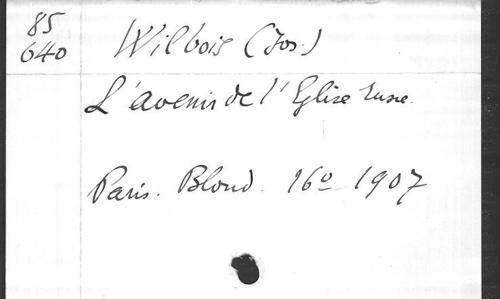 85
640
Wilbois (Jos.)
L'avenir de l'Eglise russe.
Paris. Bloud. 16º 1907